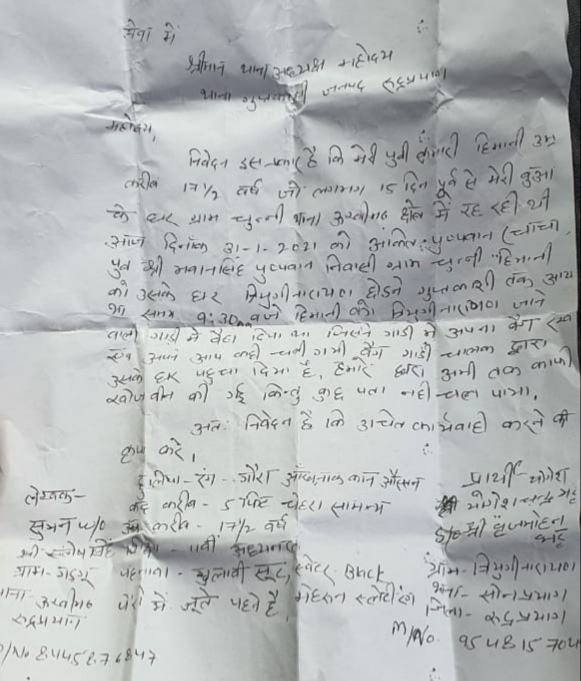 सेवा में
श्रीमान थाना अध्यक्ष महोदय
थाना गुप्तकाशी जनपद रुद्रप्रयाग
महोदय,
निवेदन इस प्रकार है कि मेरी पुत्री कुमारी हिमानी उम्र
करीब 17 1/2 वर्ष जो लगभग 15 दिन पूर्व से मेरी बुआ
के घर ग्राम चुन्नी थाना ऊखीमठ क्षेत्र में रह रही थी
आज दिनाँक 31-1-2021 को अंकित पुष्पवान (चाचा)
पुत्र श्री भवानसिंह पुष्पवान निवासी ग्राम चुन्नी हिमानी
को उसके घर त्रियुगीनारायण छोडने गुप्तकाशी तक आय
समय 9:30 बजे हिमानी को त्रियुगीनारायण जाने
वाली गाडी में बैठा दिया था जिसने गाडी में अपना बैग रख
अपने आप कही चली गयी बैग गाडी चालक द्वारा
उसके घर पहुचा दिया है, हमारे द्वारा अभी तक काफी
खोजबीन की गई किन्तु कुछ पता नही चल पाया,
अतः निवेदन है कि उचित कार्यवाही करने की
कृपा करे।
हुलिया - रंग - गौरा आँख नाक कान औसत
प्रार्थी - योगेश
लेखक -
कद करीब - 5 फिट चेहरा सामान्य
योगेश चन्द्र भट्ट
सुमन w/o
उम्र करीब - 17 1/2 वर्ष
S/o श्री बृजमोहन भट्ट
श्री सन्तोष सिंह
11वीं अध्ययनरत
ग्राम -
पहनावा - गुलाबी सूट, स्वेटर Black
ग्राम - त्रियुगीनारायण
थाना ऊखीमठ
पैरो में जूते पहने है, मेहरून
थाना - सोनप्रयाग
रुद्रप्रयाग
जिला - रुद्रप्रयाग
M/No. 95 48 15 704
/No 8445876847